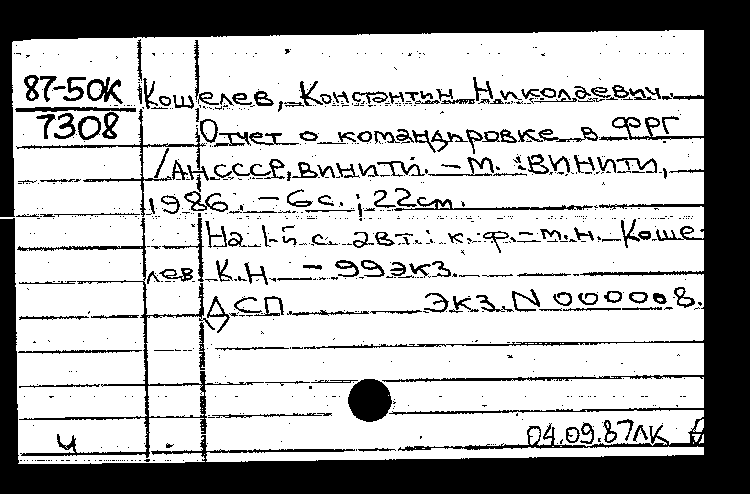 87-50К
7308
Кошелев, Константин Николаевич.
Отчет о командировке в ФРГ
/АН СССР, ВИНИТИ. – М. : ВИНИТИ,
1986. – 6 с. ; 22 см.
На 1-й с. авт.: к. ф.-м. н. Коше-
лев К.Н. – 99 экз.
ДСП. Экз. N 000008.
ч 04.09.87 ЛК